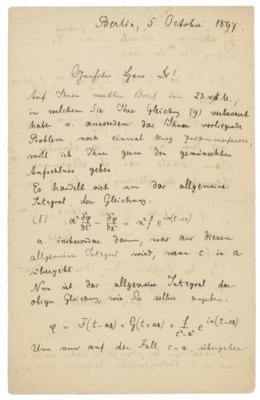 Berlin, 5 October 1897
Geehrter Herr Dr!
Auf Ihren werthen Brief vom 23. v. M.,
in welchem Sie Ihre Gleichung (9) verbessert
haben u. ausserdem das Ihnen vorliegende
Problem noch einmal kurz zusammenfassen
will ich Ihnen gerne den gewünschten
Aufschluss geben.
Es handelt sich um das allgemeine
Integral der Gleichung:
(I) a² ∂²φ/∂t² - ∂²φ/∂x² = n² f e^{in(t-cx)}
u. insbesondere darum, was aus diesem
allgemeinen Integral wird, wenn c in a
übergeht.
Nun ist das allgemeine Integral der
obigen Gleichung, wie Sie selbst angeben,
φ = F(t-ax) + G(t+ax) + f/(c²-a²) e^{in(t-cx)}
Um nun auf den Fall c=a überzugehen